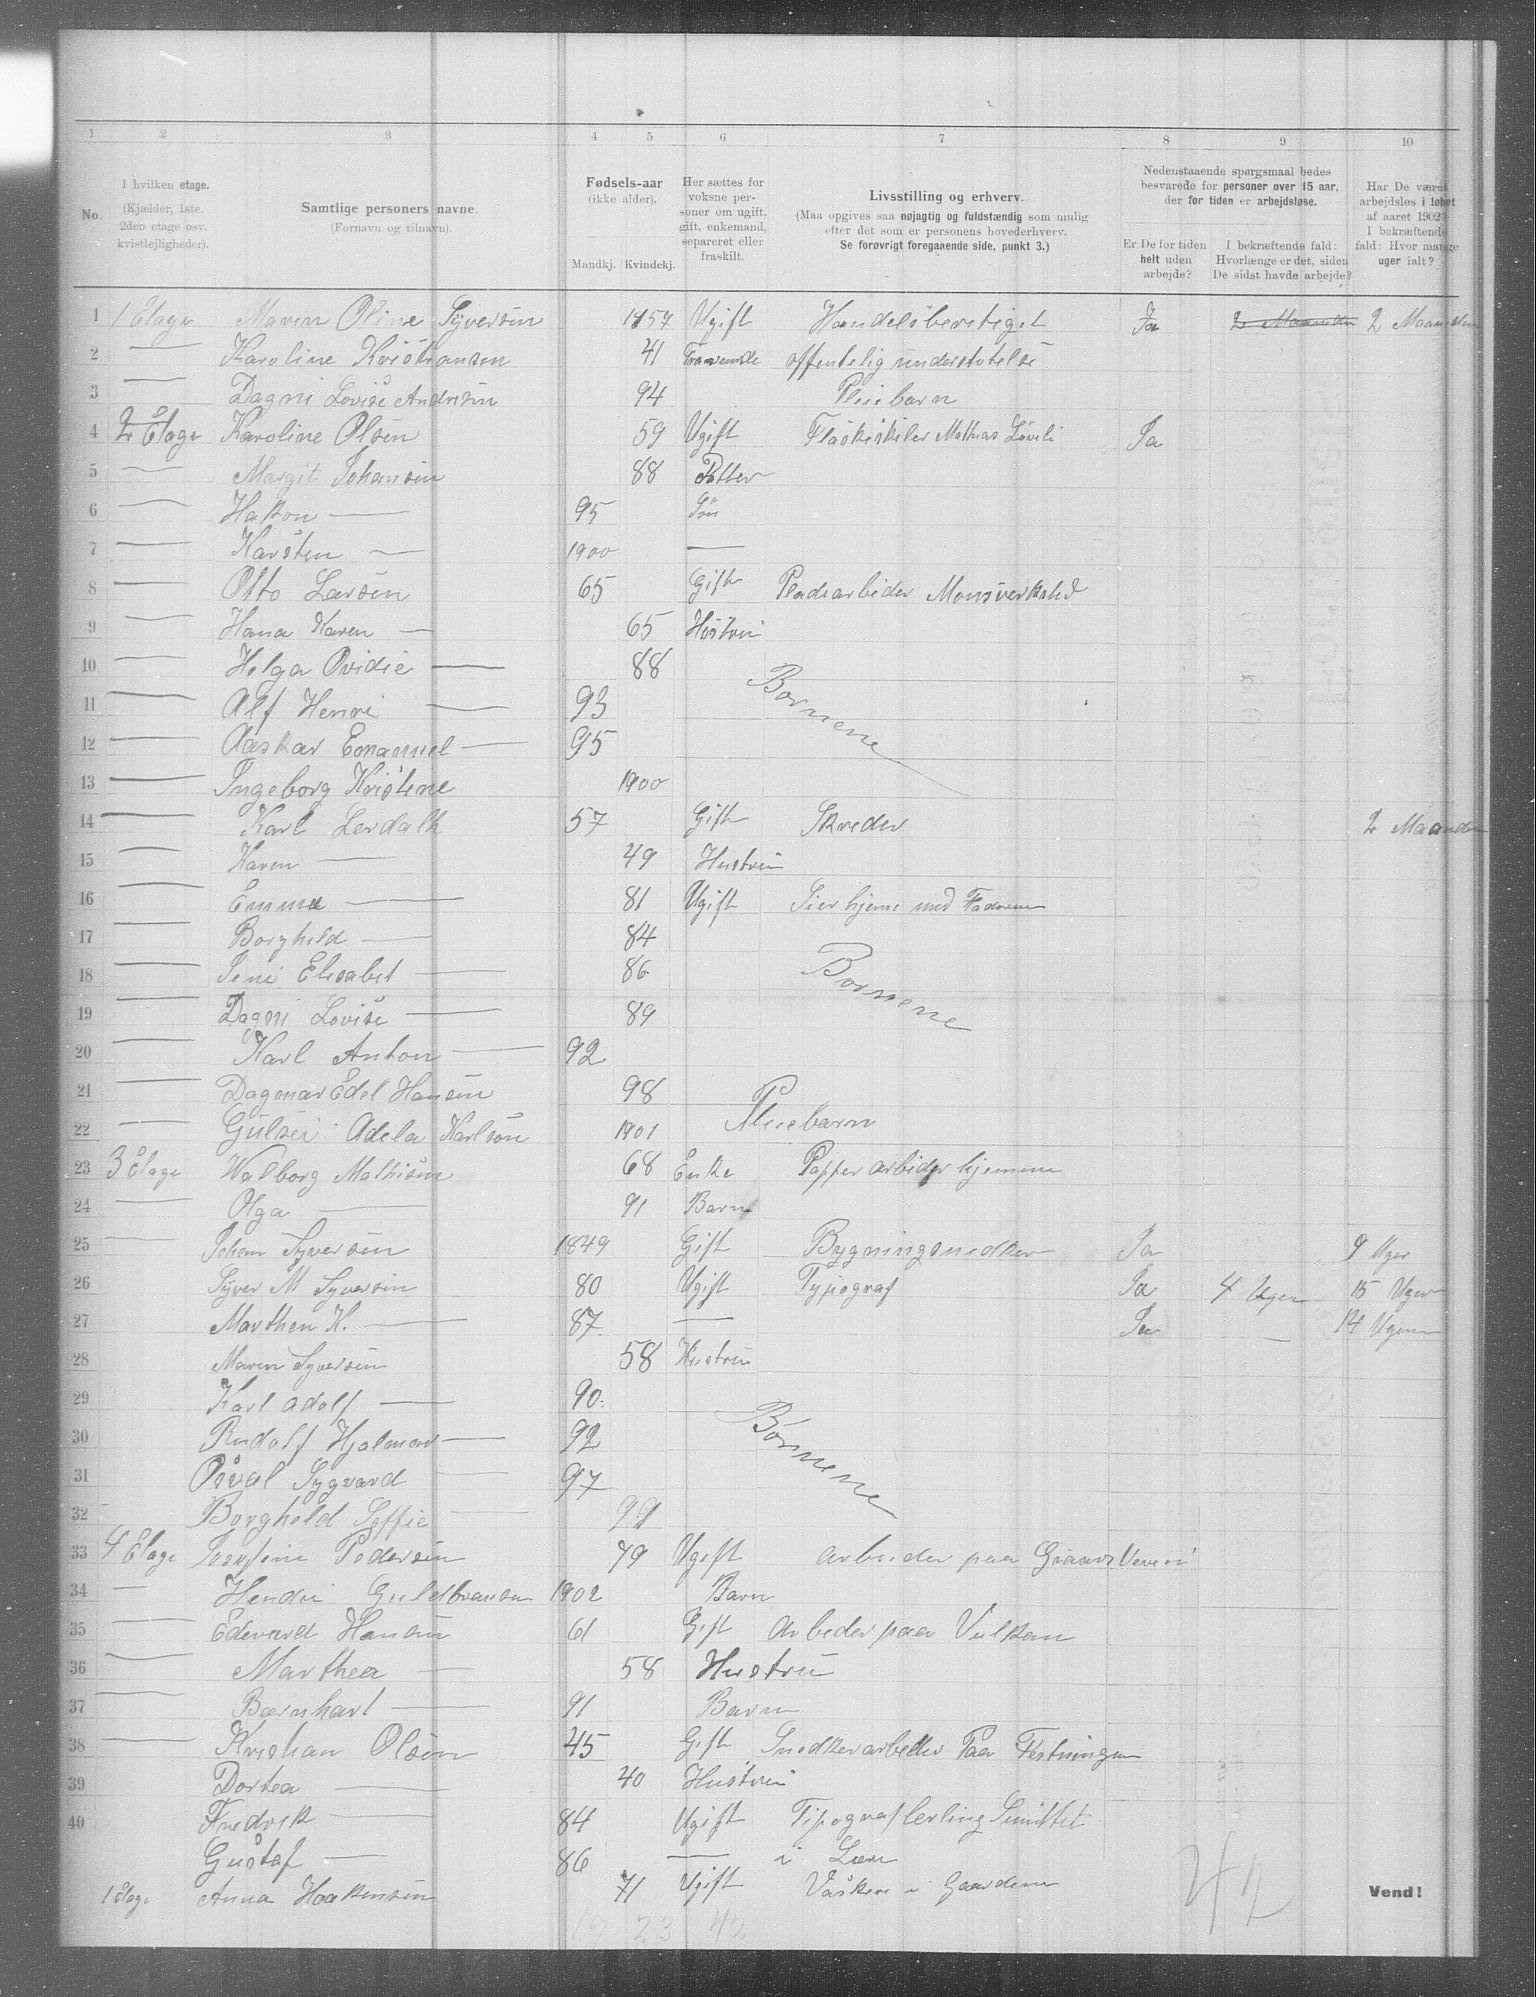 1 2 3 4 5 6 7 8 9 10
No.
I hvilken etage.
(Kjælder, 1ste.
2den etage osv.
kvistlejligheder).
Samtlige personers navne.
(Fornavn og tilnavn).
Fødsels-aar
(ikke alder).
Mandkj. Kvindekj.
Her sættes for
voksne per-
soner om ugift,
gift, enkemand,
separeret eller
fraskilt.
Livsstilling og erhverv.
(Maa opgives saa nøjagtig og fuldstændig som mulig
efter det som er personens hovederhverv.
Se forøvrigt foregaaende side, punkt 3.)
Nedenstaaende spørgsmaal bedes
besvarede for personer over 15 aar,
der for tiden er arbejdsløse.
Er De for tiden
helt uden
arbejde?
I bekræftende fald:
Hvorlænge er det, siden
De sidst havde arbejde?
Har De været
arbejdsløs i løbet
af aaret 1902?
I bekræftende
fald: Hvor mange
uger ialt?
1 1 Etage Maren Oline Syversen 1857 Ugift Handelsberetiget Ja 2 Maaneder 2 Maaneder
2 — Karoline Kristiansen 41 offentelig understøtelse
3 — Dagni Lovise Andresen 94 Pleiebarn
4 2 Etage Karoline Olsen 59 Ugift Flaskeskiler Mathias Ja
5 — Margit Johansen 88 Dotter
6 — Hakon — 95 Sön
7 — Karsten — 1900 —
8 — Otto Larsen 65 Gift Pladearbeider
9 — Hana Karen — 65 Hustru
10 — Helga Ovidie — 88 Bornene
11 — Alf Henri — 93
12 — Aaskar Emanuel — 95
13 — Ingeborg Kristine 1900
14 — Karl Lerdalh 57 Gift Skreder 2 Maaneder
15 — Karen — 49 Hustru
16 — Emma — 81 Ugift Sier hjeme med Faderen
17 — Borghild — 84
18 — Jeni Elisabet — 86 Bornene
19 — Dagni Lovise — 89
20 — Karl Anton — 92
21 — Dagmar Edel Hansen 98 Pleiebarn
22 — Adela Karlson 1901
23 3 Etage Walborg Mathisen 68 Enke Papper arbider hjemme
24 — Olga — 91 Barn
25 — Johan Syversen 1849 Gift Bygningsnedker Ja 9 Uger
26 Syver M Syversen 80 Ugift Typograf Ja 4 Uger 15 Uger
27 Marthen K. — 87 — Ja — 14 Uger
28 Maren Syversen 58 Hustru
29 Karl Adolf — 90 Bornene
30 Rudolf Hjalmar — 92
31 Osval Sygvard — 97
32 Borghold Soffie — 99
33 4 Etage Josefine Pedersen 79 Ugift Arbeider paa Graans Veveri
34 — Hendri Guldbransen 1902 Barn
35 — Edevard Hansen 61 Gift Arbeder paa Vulkan
36 — Marthea — 58 Hustru
37 — Bærnhart — 91 Barn
38 — Kristian Olsen 45 Gift Snedkerarbeder Paa Festningen
39 Dortea — 40 Hustru
40 Fredrik — 84 Ugift Tipograf lerling
Gustaf — 86 — i Lære
1 Etage Anna Haakensen 71 Ugift Vasker i Gaardene
19 23 42
42
Vend!